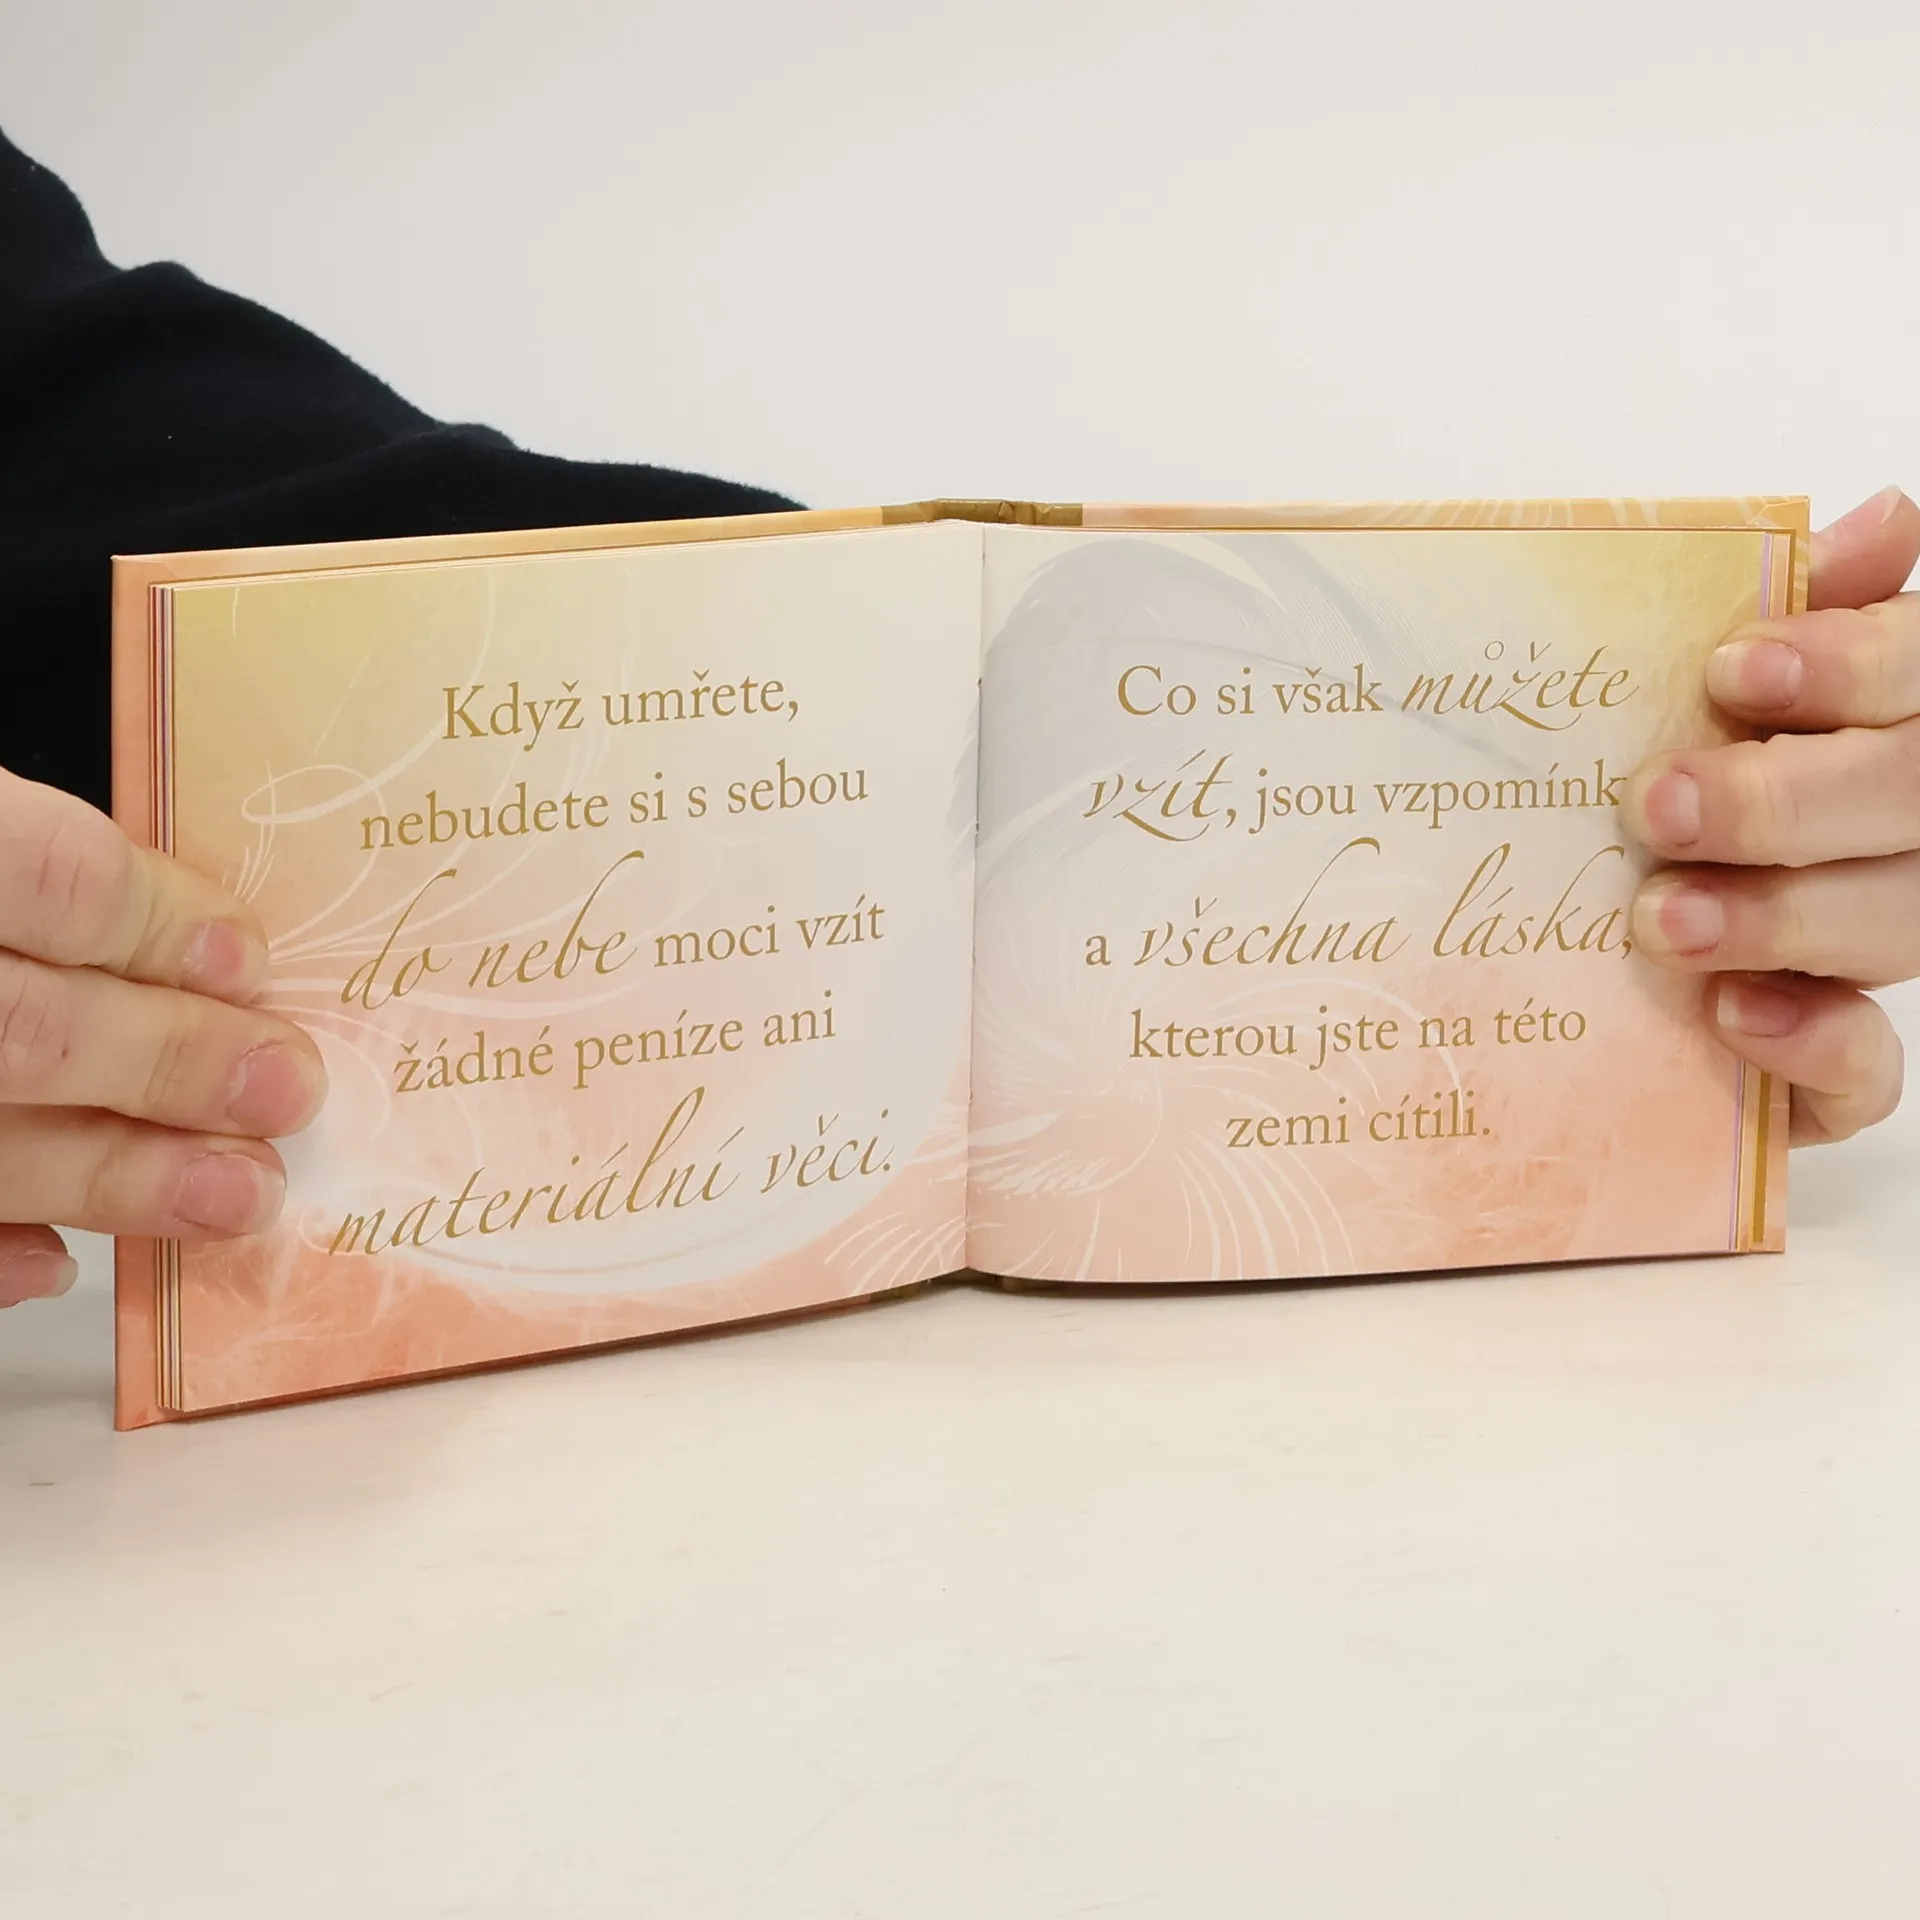 Když umřete,
nebudete si s sebou
do nebe moci vzít
žádné peníze ani
materiální věci.
Co si však můžete
vzít, jsou vzpomínk
a všechna láska,
kterou jste na této
zemi cítili.